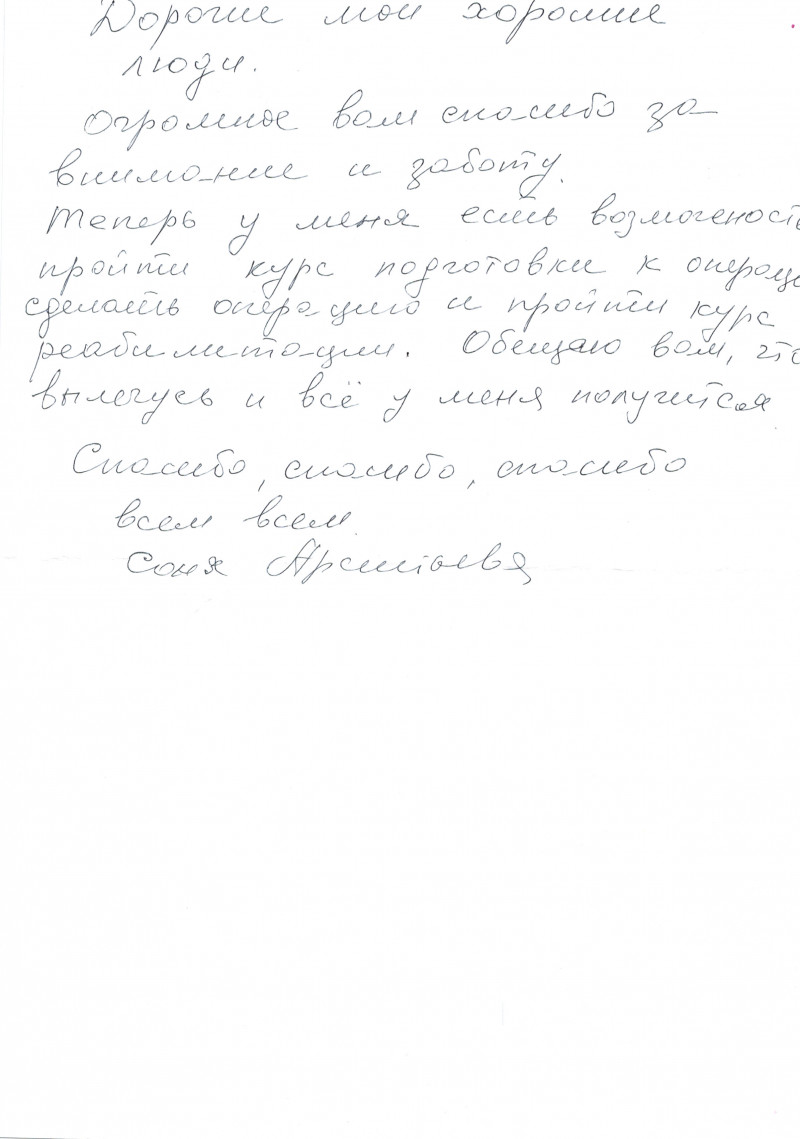 Дорогие мои хорошие
люди.
Огромное вам спасибо за
внимание и заботу.
Теперь у меня есть возможность
пройти курс подготовки к операци
сделать операцию и пройти курс
реабилитации. Обещаю вам, что
вылечусь и всё у меня получится
Спасибо, спасибо, спасибо
всем всем.
Соня